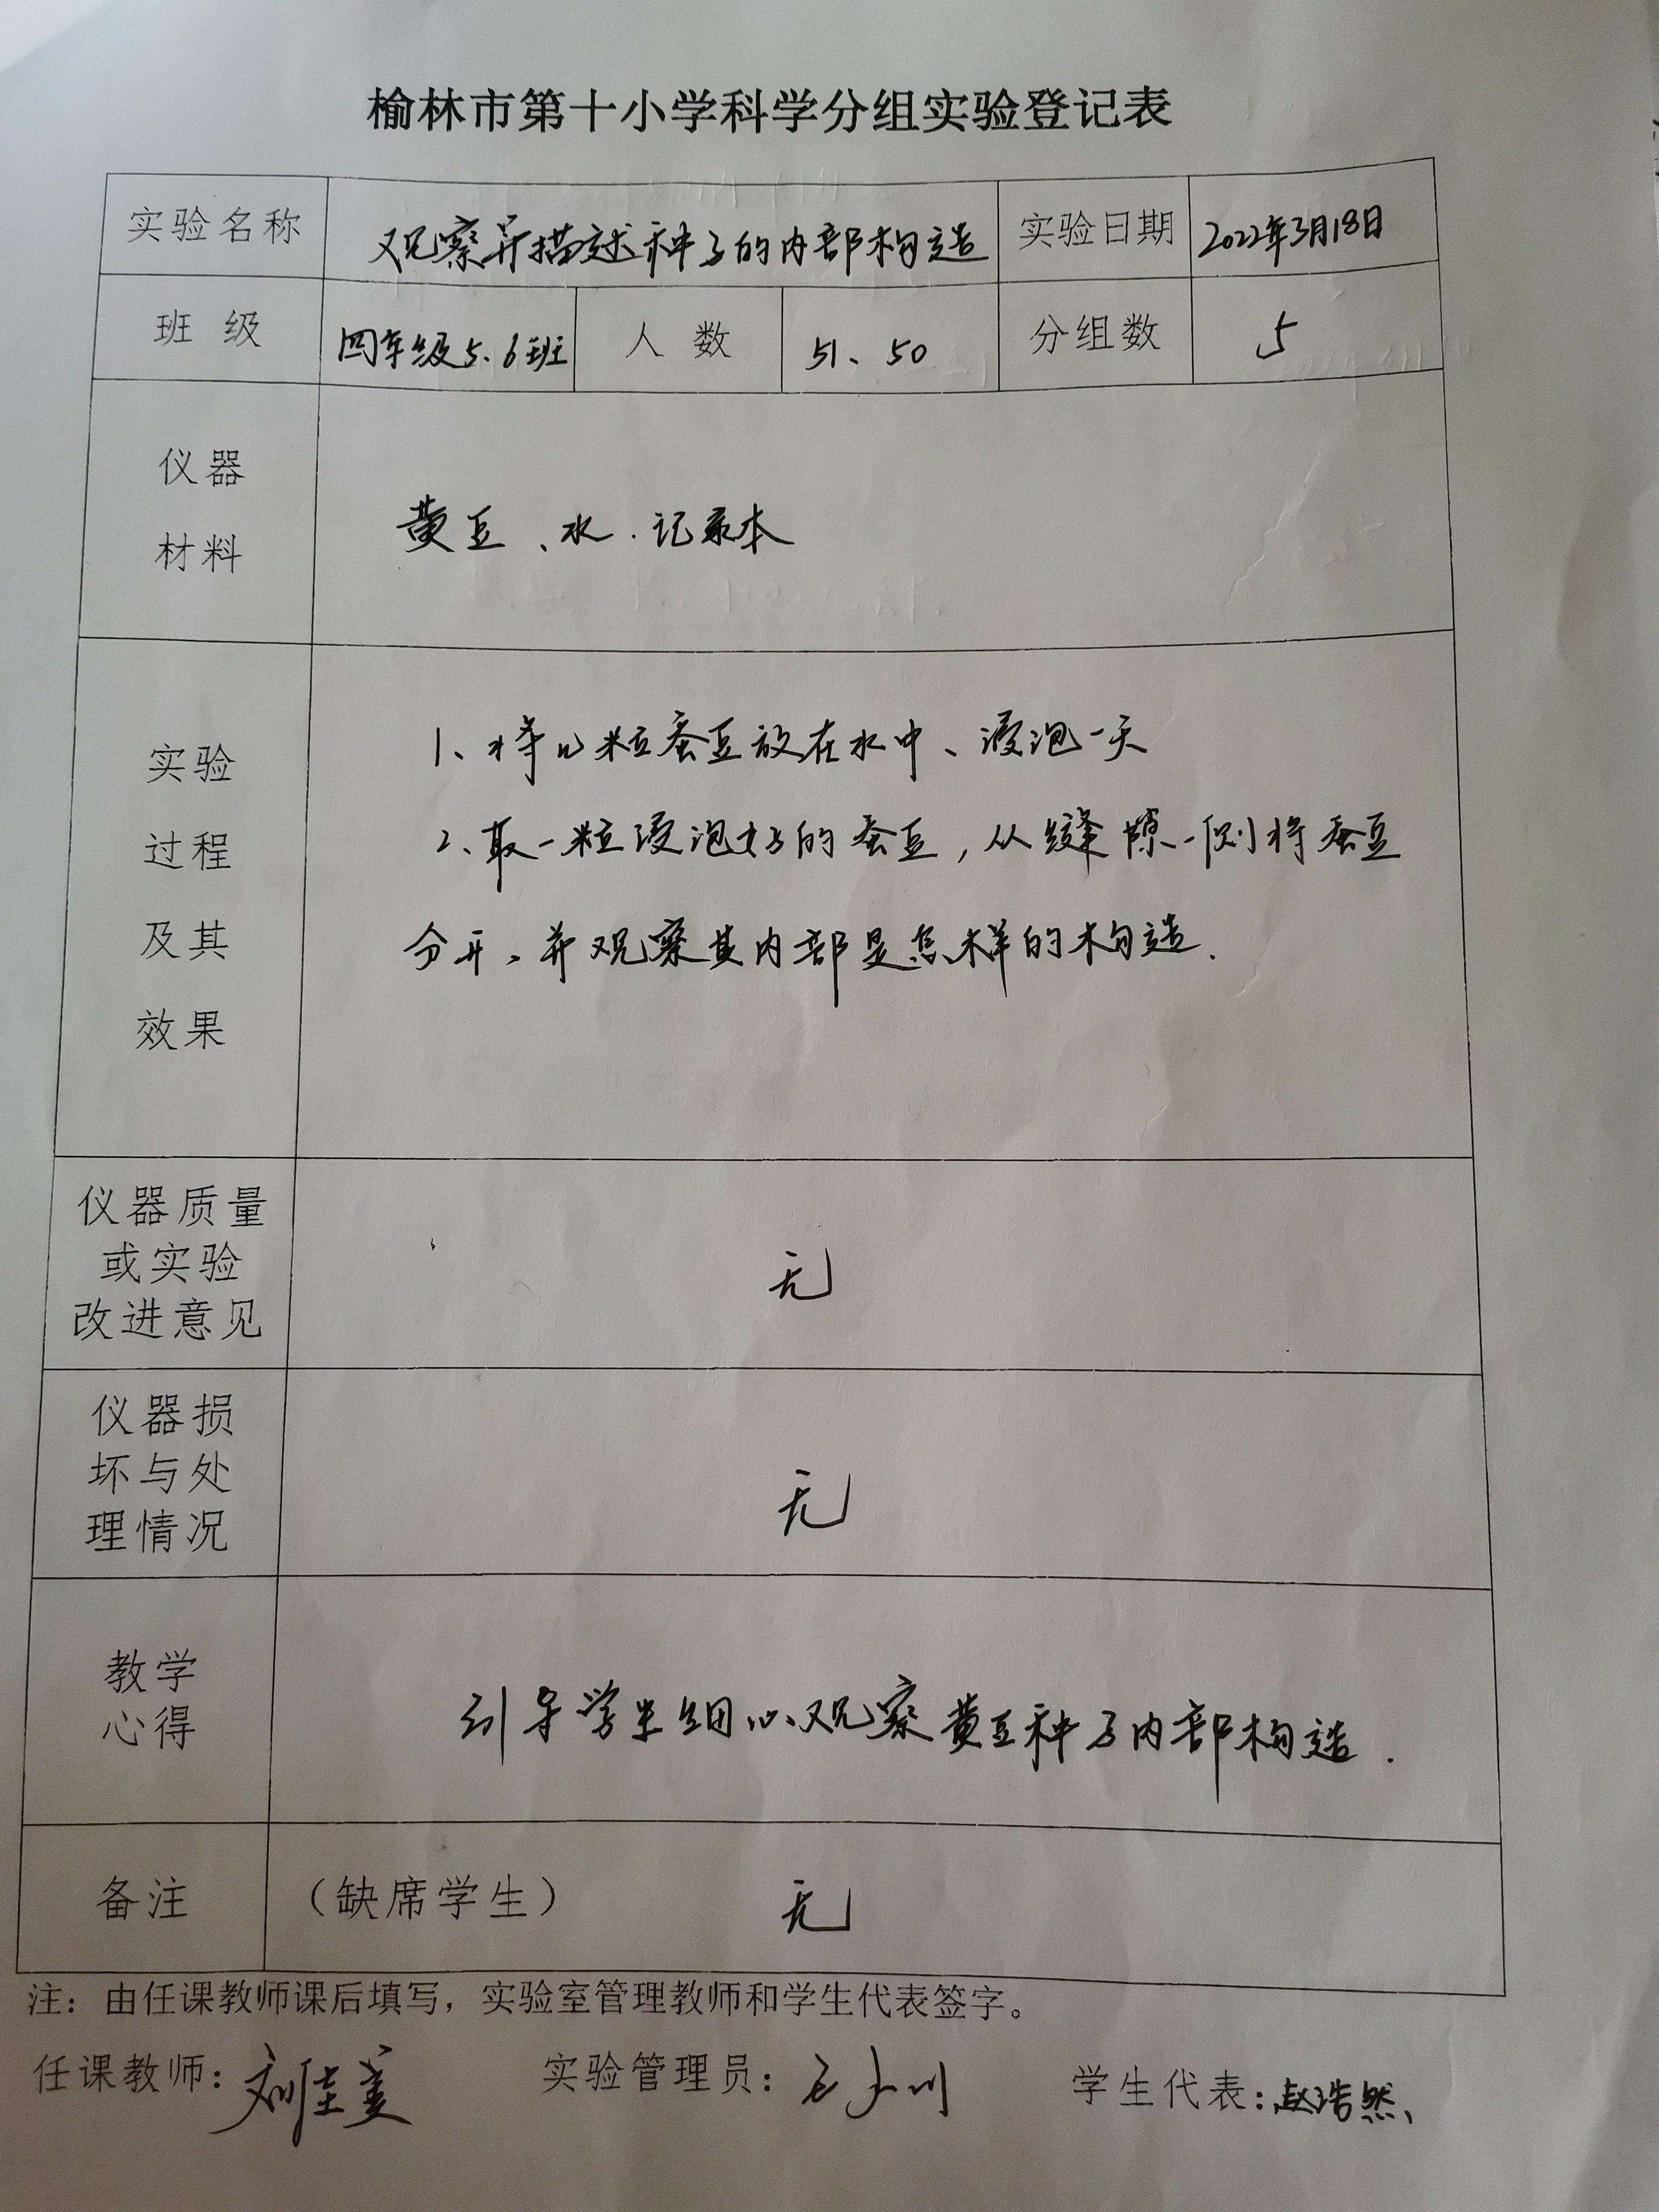 榆林市第十小学科学分组实验登记表
实验名称 观察并描述种子的内部构造 实验日期 2022年3月18日
班 级 四年级5.6班 人 数 51、50 分组数 5
仪器
材料
黄豆、水.记录本
实验
过程
及其
效果
1、将几粒蚕豆放在水中、浸泡一天
2、取一粒浸泡好的蚕豆,从缝隙一侧将蚕豆
分开、并观察其内部是怎样的构造.
仪器质量
或实验
改进意见
无
仪器损
坏与处
理情况
无
教学
心得
引导学生细心观察黄豆种子内部构造.
备注 (缺席学生) 无
注:由任课教师课后填写,实验室管理教师和学生代表签字。
任课教师:刘佳美 实验管理员: 学生代表:赵浩然